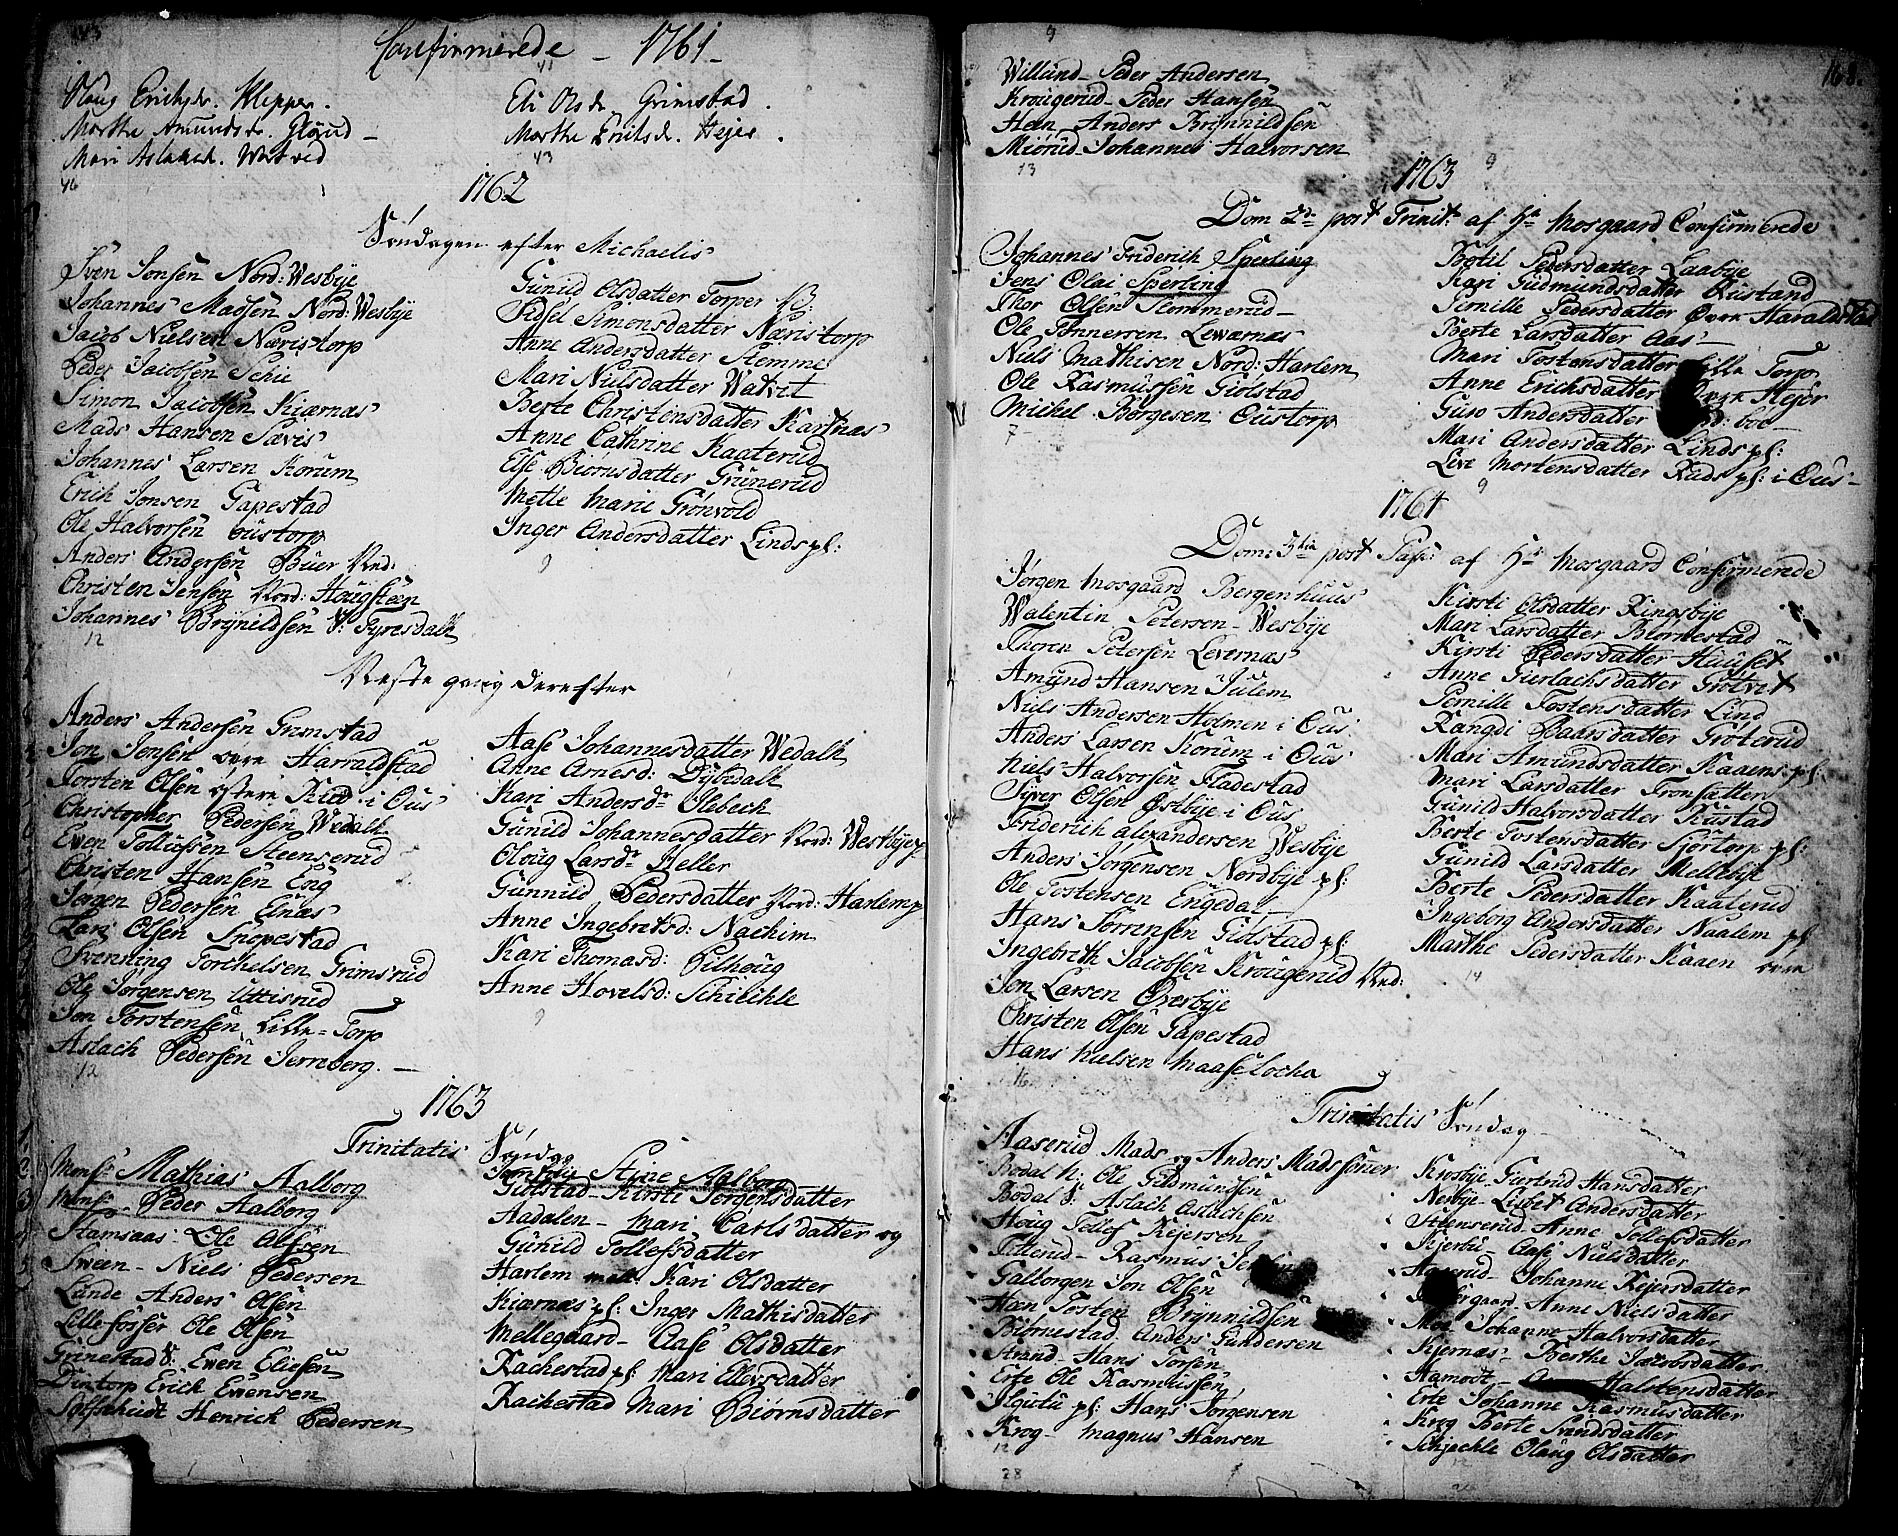 Confirmerede – 1761 –
Erichsdr. Klepper.
Marthe Amundsdr.
Mari Aslaksd. Watved
46
41
Eli Olsdr. Grimstad.
Marthe Erichsdr. Hejer.
43
1762
Søndagen efter Michaelis
Sven Jonsen Nord: Wesbÿe
Johannes Madsen Nord: Wesbÿe
Jacob Nielsen Næristorp
Peder Jacobsen Schie
Simon Jacobsen Kiærnæs
Mads Hansen Sævis
Johannes Larsen Korum
Erich Jonsen Gapestad
Ole Halvorsen Oustorp
Anders Andersen Buer Ned:
Christen Jensen Nord: Hougsteen
Johannes Brÿnildsen S: Syresdalk
12
Gunild Olsdatter Torper
Sidsel Simonsdatter Næristorp
Anne Andersdatter Stemme
Mari Nielsdatter Watvit
Berte Christensdatter Kartnæs
Anne Cathrine Kaaterud
Else Biørnsdatter Grunerud
Mette Marie Grønvold
Inger Andersdatter Linds pl:
9
Neste gang derefter
Anders Andersen Grimstad
Jon Jonsen øvre Harraldstad
Torsten Olsen østre Rud i Ous
Christopher Pedersen Wedalk
Even Tollefsen Steenserud
Christen Hansen Eng
Jørgen Pedersen Elnæs
Lars Olsen Snopestad
Svenning Torchelsen Grimsrud
Ole Jørgensen Uttisrud
Jon Torstensen Lille-Torp
Aslach Pedersen Jerreberg.
12
Aase Johannesdatter Wedalk
Anne Arnesd: Dÿbedalk
Kari Andersdr Olebech
Gunild Johannesdatter Nord: Westbÿe p
Oloug Larsdr Heller
Gunnild Pedersdatter Nord: Harlem p
Anne Ingebretsd: Nachim
Kari Thomasd: Pilhoug
Anne Hovelsd: Schiechle
9
1763
Trinitatis Søndag
Monsr Mathias Aalborg
Monsr Peder Aalborg
Stamsaas Ole Olsen
Sween – Niels Pedersen
Lande Anders Olsen
Lille fosser Ole Olsen
Grinestad S: Even Eliesen
Dintorp Erich Evensen
Henrich Pedersen
Jomfrue Stine Aalborg
Giølstad – Kirsti Jørgensdatter
Aadalen – Mari Carlsdatter og
Gunild Tollefsdatter
Harlem Kari Olsdatter
Kiærnæs pl: Inger Mathisdatter
Mellegaard – Aase Olsdatter
Rachestad pl: Mari Ellevsdatter
Rachestad Mari Biørnsdatter
9
168.
Willund – Peder Andersen
Krougerud – Peder Hansen
Hæn Anders Brynnildsen
Miørud – Johannes Halvorsen
13
1763
9
Dom 2da post Trinit: af Hr Mosgaard Confirmerede
Johannes Friderich Sperling
Jens Olai Sperling
Thor Olsen Kommerud –
Ole Tønnersen Lewærnæs
Niels Mathisen Nord: Harlem
Ole Rasmussen Giølstad
Michel Børgesen Oustorp
7
Botil Pedersdatter Laabÿe
Kari Gudmundsdatter Rustand
Pernille Pedersdatter Øvre Haraldstad
Berte Larsdatter Aas –
Mari Tostensdatter Lille Torp
Anne Erichsdatter Øvre Hejer
Guro Andersdatter
Mari Andersdatter Linds pl:
Live Mortensdatter Ruds pl: i Ous –
9
1764
Dom: 3tia post Pasc: af Hr Mosgaard Confirmerede
Jørgen Mosgaard Bergenhuus
Walentin Petersen – Wesbÿe
Thoren Petersen Levernæs
Amund Hansen Julem
Niels Andersen Holmen i Ous
Anders Larsen Korum i Ous
Niels Halvorsen Fladestad
Siver Olsen Østbÿe i Ous
Friderich Alexandersen Wesbÿe
Anders Jørgensen Nordbÿe pl:
Ole Tostensen Engedal
Hans Sørrensen Giølstad pl:
Ingebreth Jacobsen Krougerud Ned:
Jon Larsen Ovesbÿe
Christen Olsen Gapestad
Hans Nielsen Maaselocha
16
Kirsti Olsdatter Ringsbÿe
Mari Larsdatter Biørnestad
Kirsti Pedersdatter Huuset
Anne Gierlachsdatter Grøtvet
Pernille Tostensdatter Lind
Rangdi Baarsdatter Grøterud
Mari Amundsdatter Kaaens pl:
Mari Larsdatter Tronsatter
Gunild Halvorsdatter Rustad
Berte Tostensdatter Siørtorp pl:
Gunild Larsdatter Mellebÿe
Berte Pedersdatter Kaalerud
Ingeborg Andersdatter Naalem pl
Marthe Pedersdatter Kaaen øvre
14
Trinitatis Søndag –
Aaserud Mads og Anders Madssønner
Bodal N: Ole Gudmundsen
Bodal S: Aslach Aslachsen
Houg Tollef Rejersen
Titterud – Rasmus
Galborgen Jon Olsen
Hæn Tosten Brynnildsen
Biørnestad Anders Gundersen
Strand – Hans Torsen
Erte Ole Rasmussen
pl: Hans Jørgensen
Krog – Magnus Hansen
12
28
Krosbÿe Giertrud Hansdatter
Nesbÿe – Lisbet Andersdatter
Stenserud Anne Tollefsdatter
Kjerbu – Aase Nielsdatter
Haserud – Johanne Rejersdatter
Anne Nielsdatter
Moe Johanne Halvorsdatter
Kjernæs – Berthe Jacobsdatter
Hamodt – Halstensdatter
Erte Johanne Rasmusdatter
Krog Berte Svendsdatter
Schjechle Oloug Olsdatter
12